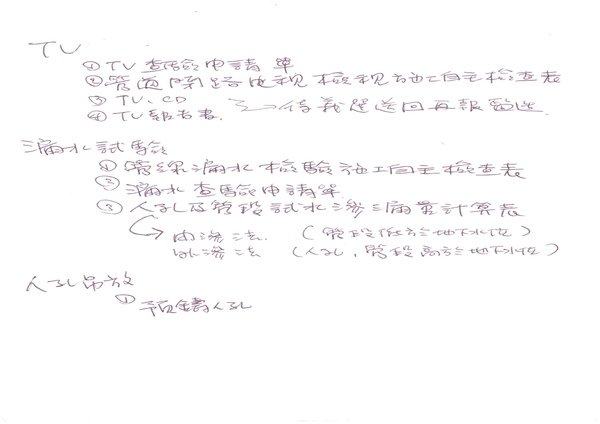 TV
① TV 查驗申請單
② 管道閉路電視檢視施工自主檢查表
③ TV、CD
④ TV報告書 → 待義遠送回再報
漏水試驗
① 管線漏水檢驗施工自主檢查表
② 漏水查驗申請單
③ 人孔及管段試水滲漏量計算表
內滲法. (管段低於地下水位)
外滲法 (人孔,管段高於地下水位)
人孔吊放
① 預鑄人孔